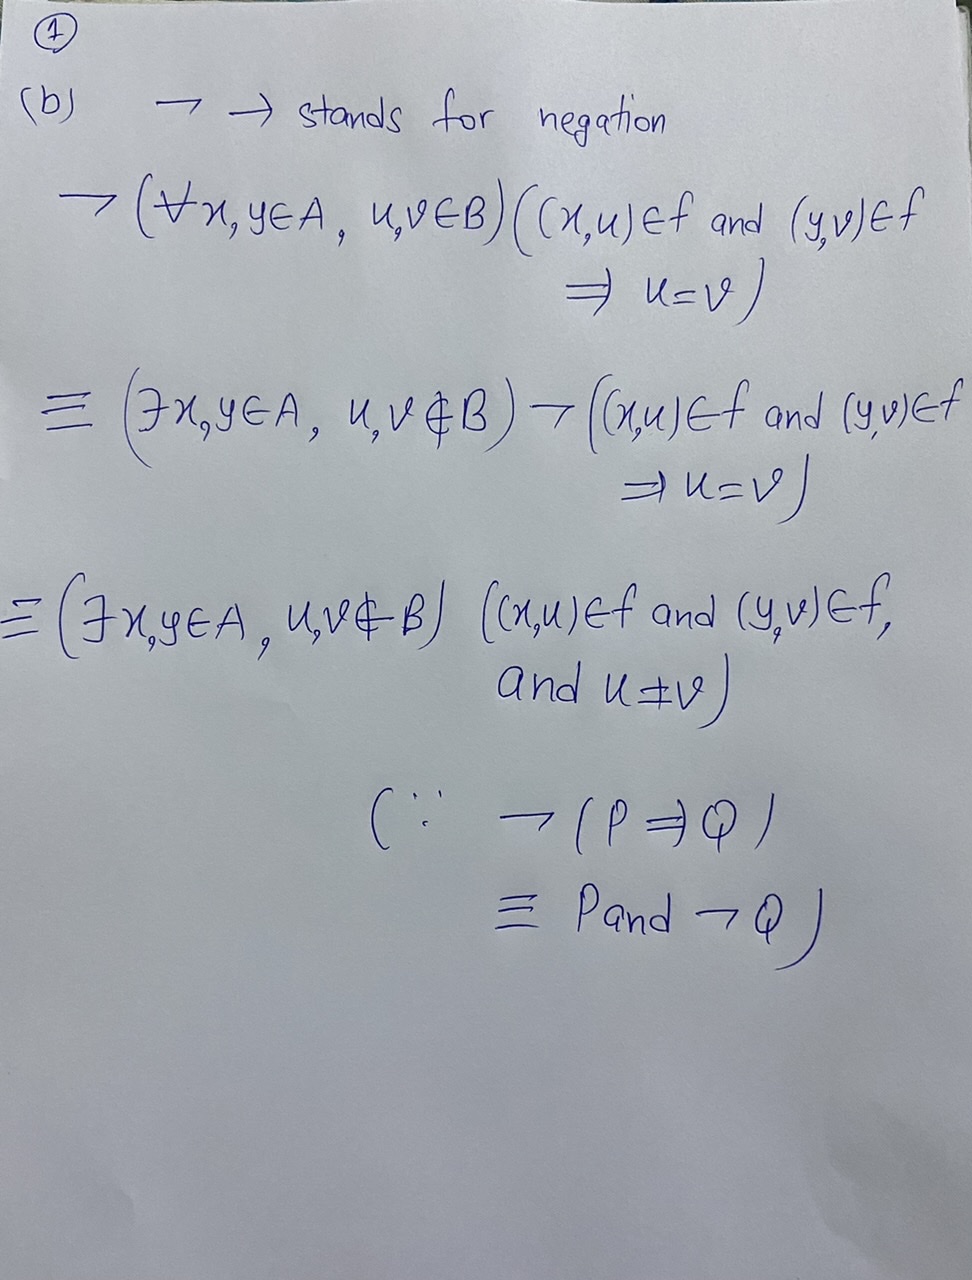 ①
(b) ¬ → stands for negation
¬ (∀x,y∈A, u,v∈B)((x,u)∈f and (y,v)∈f
⇒ u=v)
≡ (∃x,y∈A, u,v∉B) ¬ ((x,u)∈f and (y,v)∈f
⇒ u=v)
≡ (∃x,y∈A, u,v∉B) ((x,u)∈f and (y,v)∈f,
and u≠v)
(∵ ¬ (P ⇒ Q)
≡ P and ¬ Q)